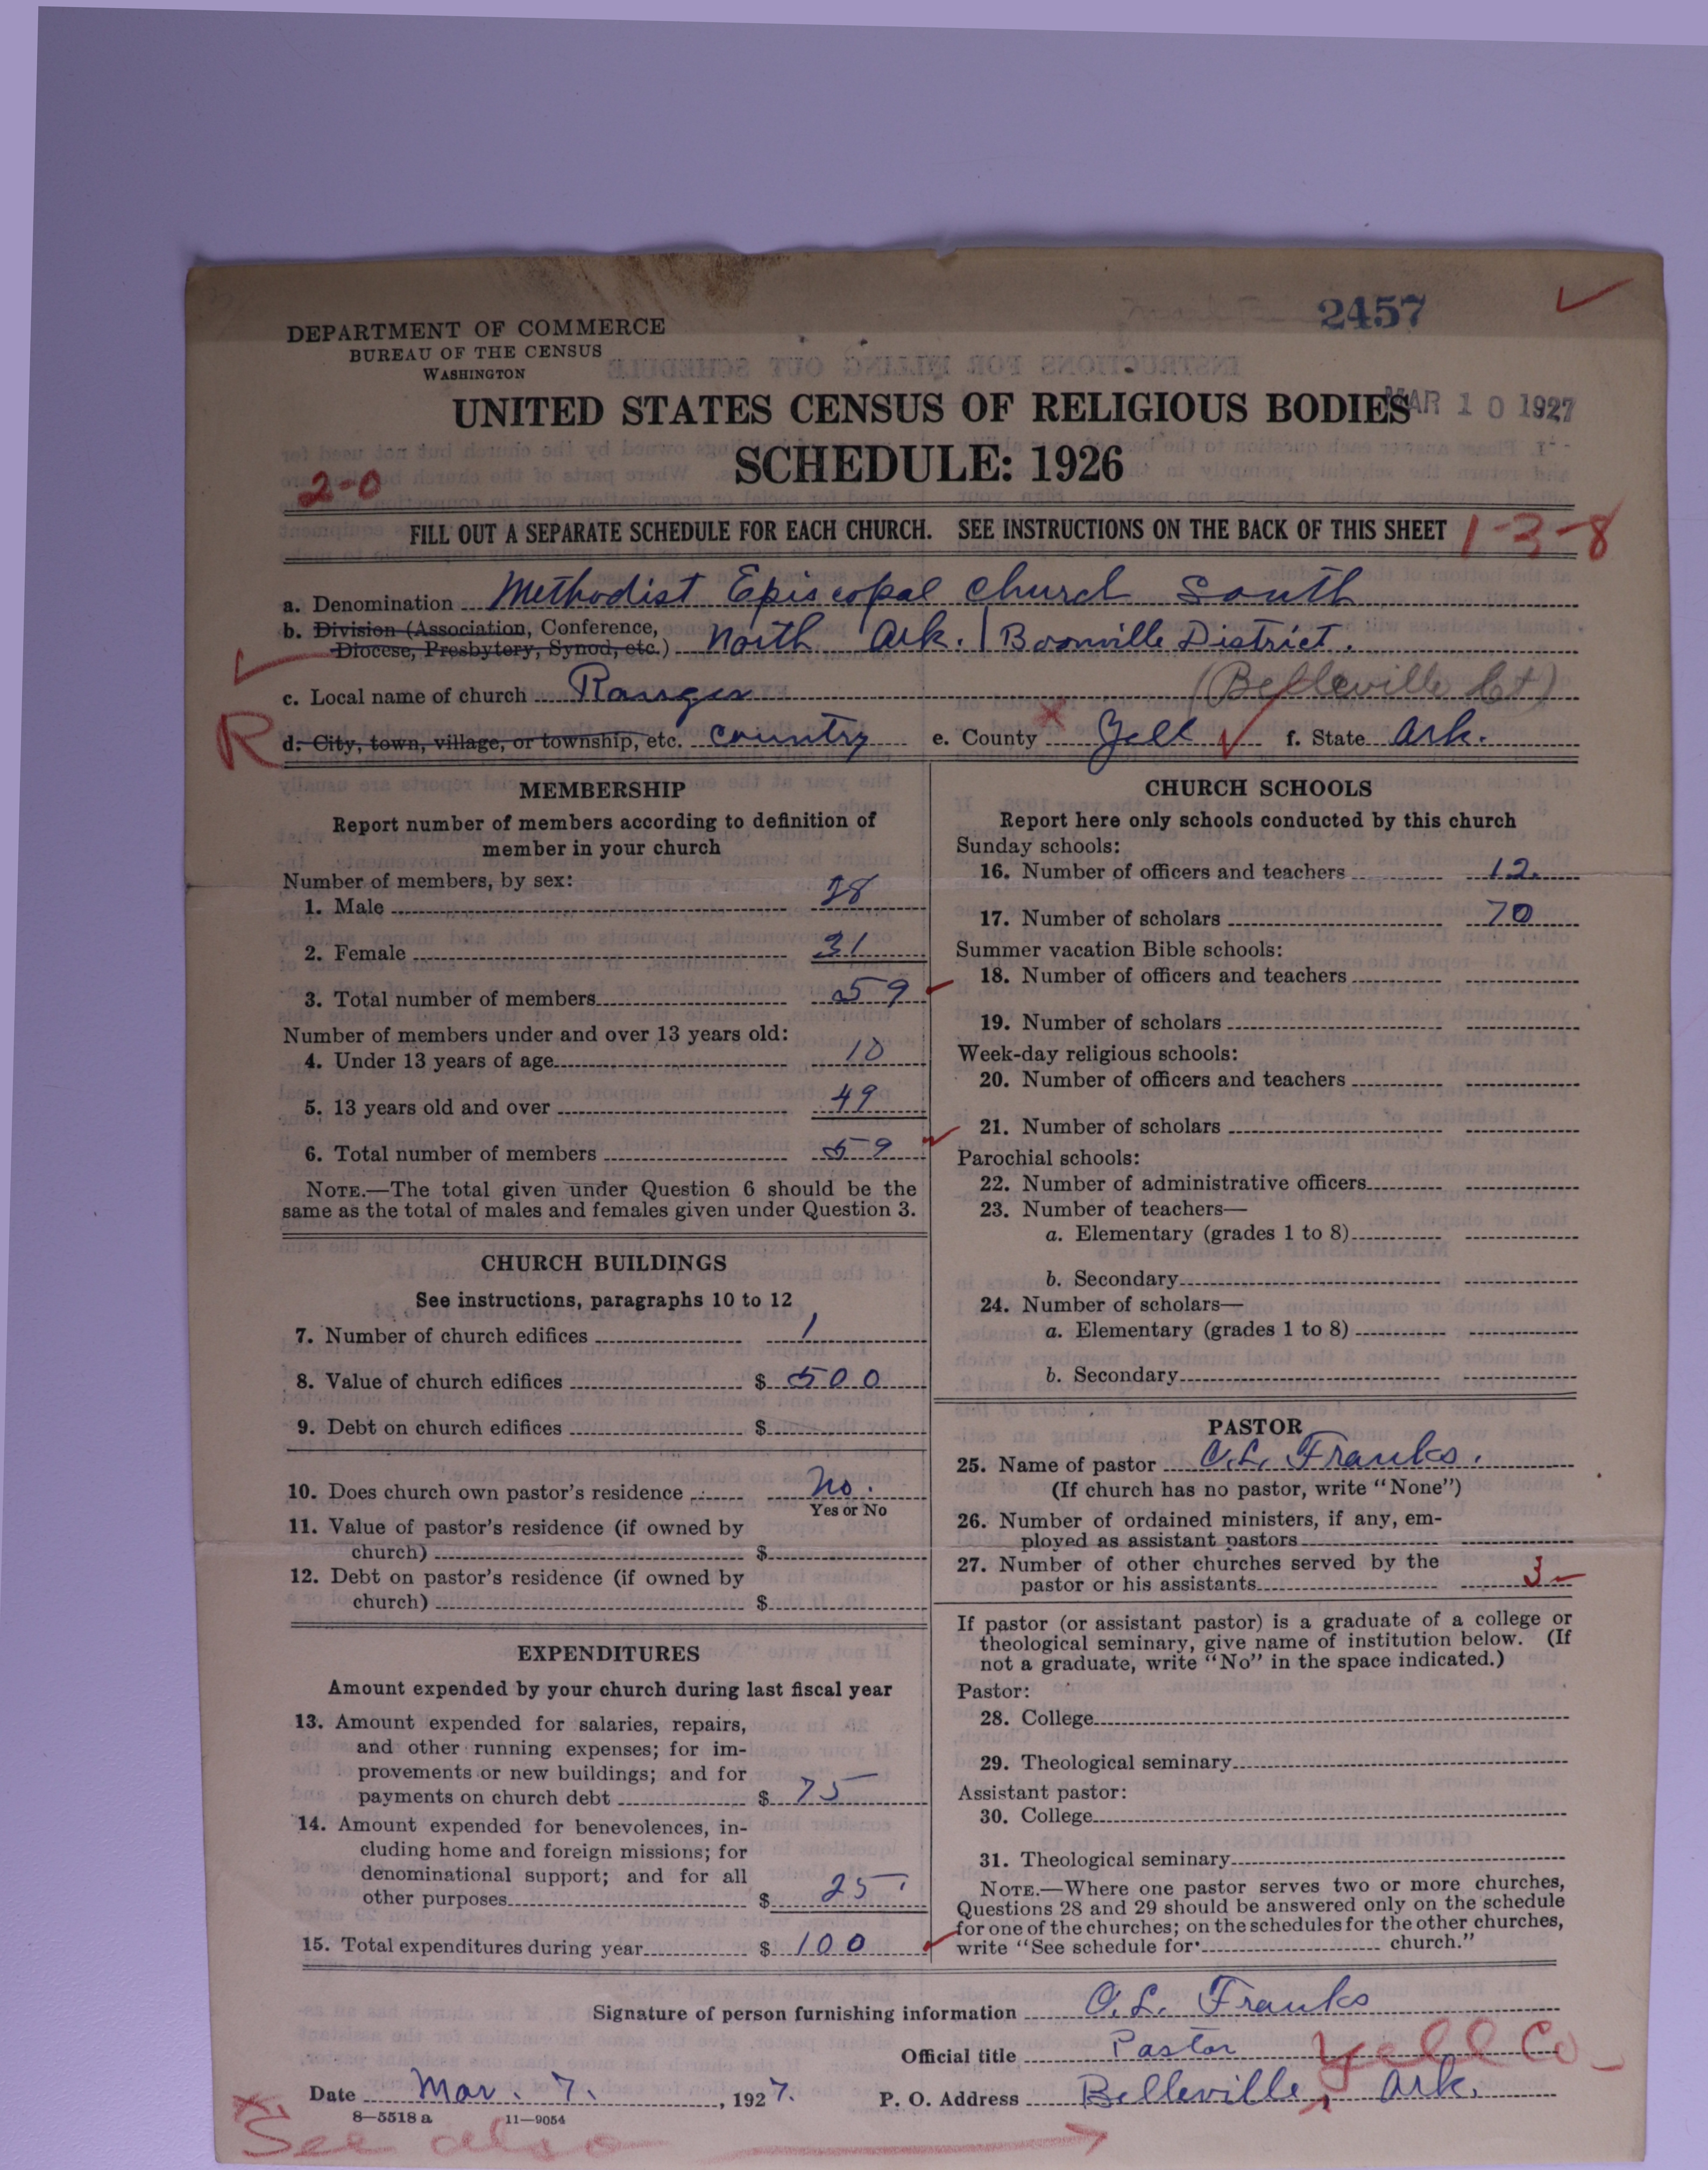 2457
DEPARTMENT OF COMMERCE
BUREAU OF THE CENSUS
WASHINGTON
UNITED STATES CENSUS OF RELIGIOUS BODIES
MAR 10 1927
SCHEDULE: 1926
2-0
FILL OUT A SEPARATE SCHEDULE FOR EACH CHURCH. SEE INSTRUCTIONS ON THE BACK OF THIS SHEET
1-3-8
a. Denomination Methodist Episcopal Church South
b. Division (Association, Conference,
Diocese, Presbytery, Synod, etc.) North Ark. | Boonville District.
c. Local name of church Ranger (Belleville Ct)
R
d. City, town, village, or township, etc. country e. County Yell f. State Ark.
MEMBERSHIP
Report number of members according to definition of
member in your church
Number of members, by sex:
1. Male 28
2. Female 31
3. Total number of members 59
Number of members under and over 13 years old:
4. Under 13 years of age 10
5. 13 years old and over 49
6. Total number of members 59
NOTE.—The total given under Question 6 should be the
same as the total of males and females given under Question 3.
CHURCH BUILDINGS
See instructions, paragraphs 10 to 12
7. Number of church edifices 1
8. Value of church edifices $ 500
9. Debt on church edifices $
10. Does church own pastor's residence No.
Yes or No
11. Value of pastor's residence (if owned by
church) $
12. Debt on pastor's residence (if owned by
church) $
EXPENDITURES
Amount expended by your church during last fiscal year
13. Amount expended for salaries, repairs,
and other running expenses; for im-
provements or new buildings; and for
payments on church debt $ 75
14. Amount expended for benevolences, in-
cluding home and foreign missions; for
denominational support; and for all
other purposes $ 25
15. Total expenditures during year $ 100
CHURCH SCHOOLS
Report here only schools conducted by this church
Sunday schools:
16. Number of officers and teachers 12.
17. Number of scholars 70
Summer vacation Bible schools:
18. Number of officers and teachers
19. Number of scholars
Week-day religious schools:
20. Number of officers and teachers
21. Number of scholars
Parochial schools:
22. Number of administrative officers
23. Number of teachers—
a. Elementary (grades 1 to 8)
b. Secondary
24. Number of scholars—
a. Elementary (grades 1 to 8)
b. Secondary
PASTOR
25. Name of pastor O.L. Franks.
(If church has no pastor, write "None")
26. Number of ordained ministers, if any, em-
ployed as assistant pastors
27. Number of other churches served by the
pastor or his assistants 3
If pastor (or assistant pastor) is a graduate of a college or
theological seminary, give name of institution below. (If
not a graduate, write "No" in the space indicated.)
Pastor:
28. College
29. Theological seminary
Assistant pastor:
30. College
31. Theological seminary
NOTE.—Where one pastor serves two or more churches,
Questions 28 and 29 should be answered only on the schedule
for one of the churches; on the schedules for the other churches,
write "See schedule for church."
Signature of person furnishing information O. L. Franks
Official title Pastor
Yell Co.
Date Mar. 7. , 1927. P. O. Address Belleville, Ark.
8—5518 a 11—9054
See also